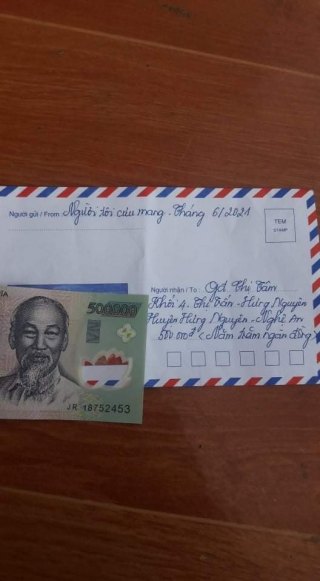 Người gửi / From: Người tôi cưu mang. Tháng 6/2021
TEM
STAMP
Người nhận / To: Thị Tâm
Khối 4. Thị Trấn - Hưng Nguyên
Huyện Hưng Nguyên - Nghệ An
500.000đ (Năm trăm ngàn đồng)
500000
JR 18752453